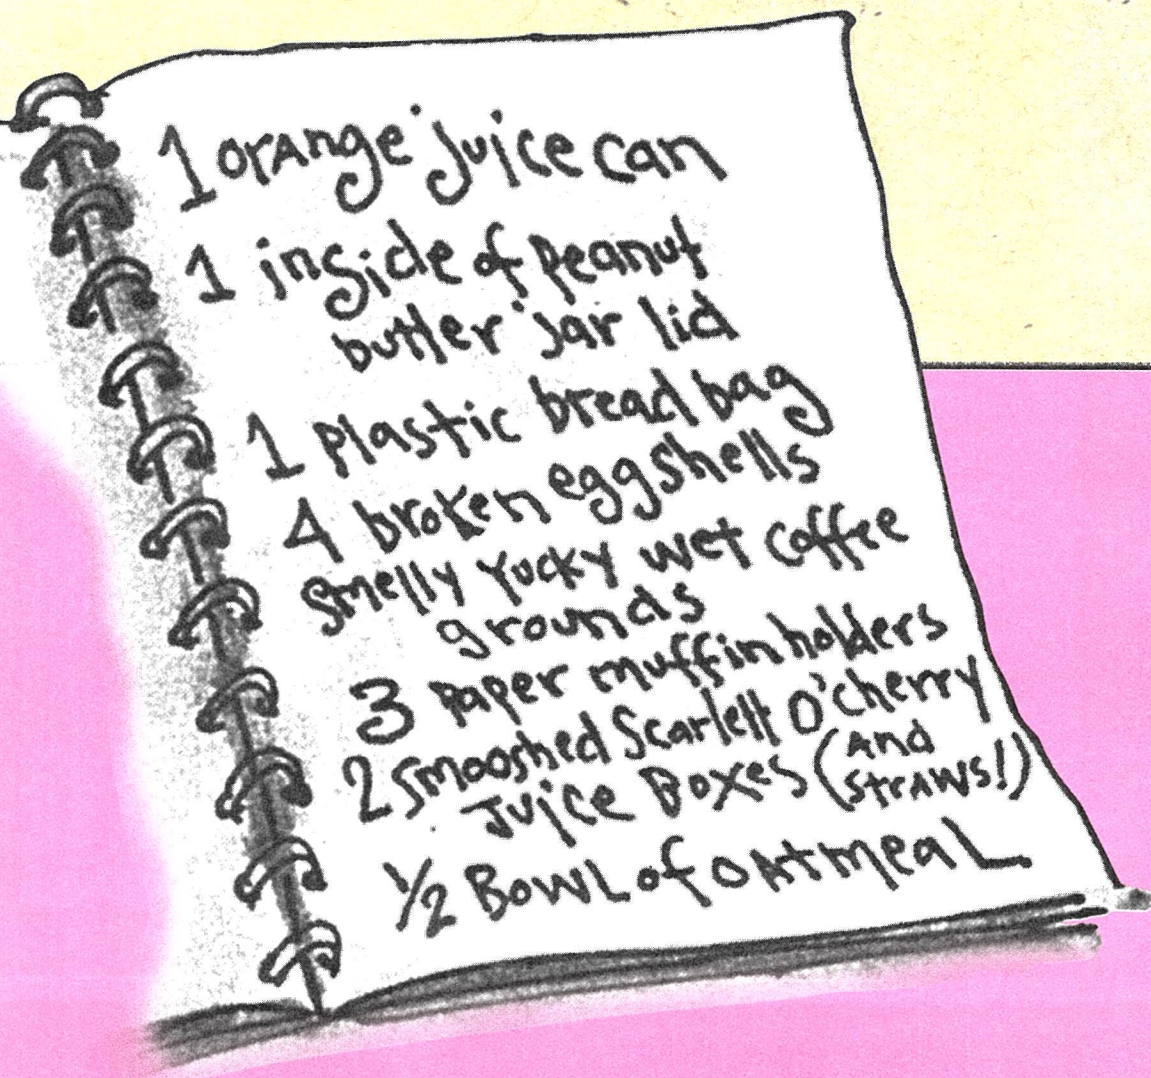 1 orange juice can
1 inside of peanut
butter jar lid
1 plastic bread bag
4 broken eggshells
smelly yucky wet coffee
grounds
3 paper muffin holders
2 smooshed Scarlett O'cherry
Juice Boxes (And
STRAWS!)
1/2 BOWL of OATmeAL